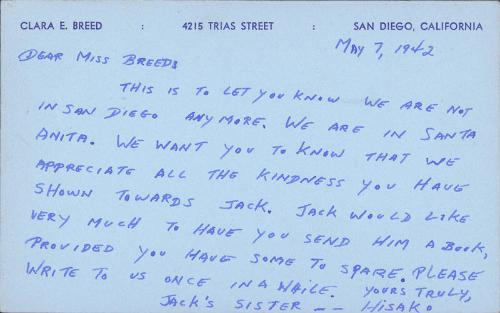 CLARA E. BREED : 4215 TRIAS STREET : SAN DIEGO, CALIFORNIA
MAY 7, 1942
DEAR MISS BREED:
THIS IS TO LET YOU KNOW WE ARE NOT
IN SAN DIEGO ANYMORE. WE ARE IN SANTA
ANITA. WE WANT YOU TO KNOW THAT WE
APPRECIATE ALL THE KINDNESS YOU HAVE
SHOWN TOWARDS JACK. JACK WOULD LIKE
VERY MUCH TO HAVE YOU SEND HIM A BOOK,
PROVIDED YOU HAVE SOME TO SPARE. PLEASE
WRITE TO US ONCE IN A WHILE. YOURS TRULY,
JACK'S SISTER -- HISAKO